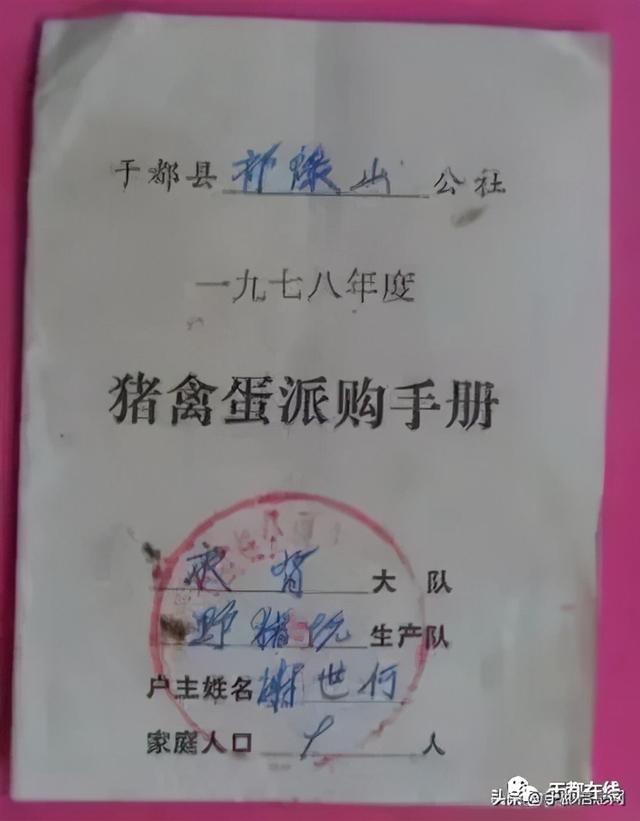 于都县祁禄山公社
一九七八年度
猪禽蛋派购手册
背大队
野猪坑生产队
户主姓名谢世何
家庭人口人
于都在线
头条@于都信息网